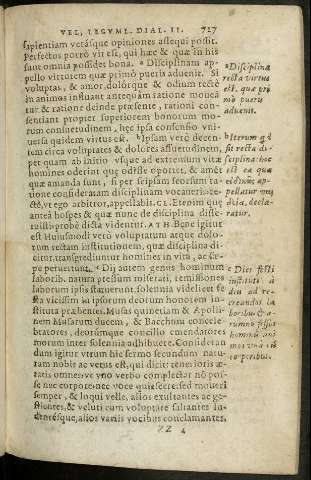 VEL, LEGVM. DIAL. II. 727
sapientiam verásque opiniones assequi possit.
Perfectus porrò vir est, qui hæc & quæ in his
sunt omnia possidet bona. ᵃ Disciplinam ap-
pello virtutem quæ primò pueris aduenit. Si
voluptas, & amor, dolórque & odium rectè
in animos influant antequàm ratione moueã
tur & ratione deinde præsente, rationi con-
sentiant propter superiorem bonorum mo-
rum consuetudinem, hęc ipsa consensio vni-
uersa quidem virtus est. ᵇ Ipsam verò decen-
tem circa voluptates & dolores assuetudinem,
per quam ab initio vsque ad extremum vitæ
homines oderint quę odisse oportet, & amẽt
quæ amanda sunt, si per seipsam seorsum ra-
tione consideratam disciplinam vocaueris, re-
ctè, vt ego arbitror, appellabis. CL. Etenim quę
antea hospes & quæ nunc de disciplina disse-
ruisti, probè dicta videntur. ATH. Bene igitur
est. Huiusmodi verò voluptatum atque dolo-
rum rectam institutionem, quæ disciplina di-
citur, transgrediuntur homines in vita, ac sæ-
pe peruertunt. ᶜ Dij autem genus hominum
laborib. natura pressum miserati, remissiones
laborum ipsis statuerunt, solennia videlicet fe
sta vicissim in ipsorum deorum honorem in-
stituta præbentes. Musas quinetiam & Apolli-
nem Musarum ducem, & Bacchum concele-
bratores, deorúmque concilio emendatores
morum inter solennia adhibuere. Consideran
dum igitur vtrum hic sermo secundum natu-
ram nobis ac verus est, qui dicit: tenerioris æ-
tatis omnes, vt vno verbo complectar nõ pos-
se nec corpore nec voce quiescere, sed moueri
semper, & loqui velle, alios exultantes ac ge-
stientes, & veluti cum voluptate saltantes lu-
dentésque, alios variis vocibus conclamantes.
ZZ 4
a Disciplina
recta virtus
est, quæ pri
mò pueris
aduenit.
b Iterum qđ
sit recta di-
sciplina: hęc
est ea quæ
ap-
decla-
ratur.
c Dies festi
instituti à
diis ad re-
creandos la
boribus &
hominũ ani
mos vnà cũ
corporibus.